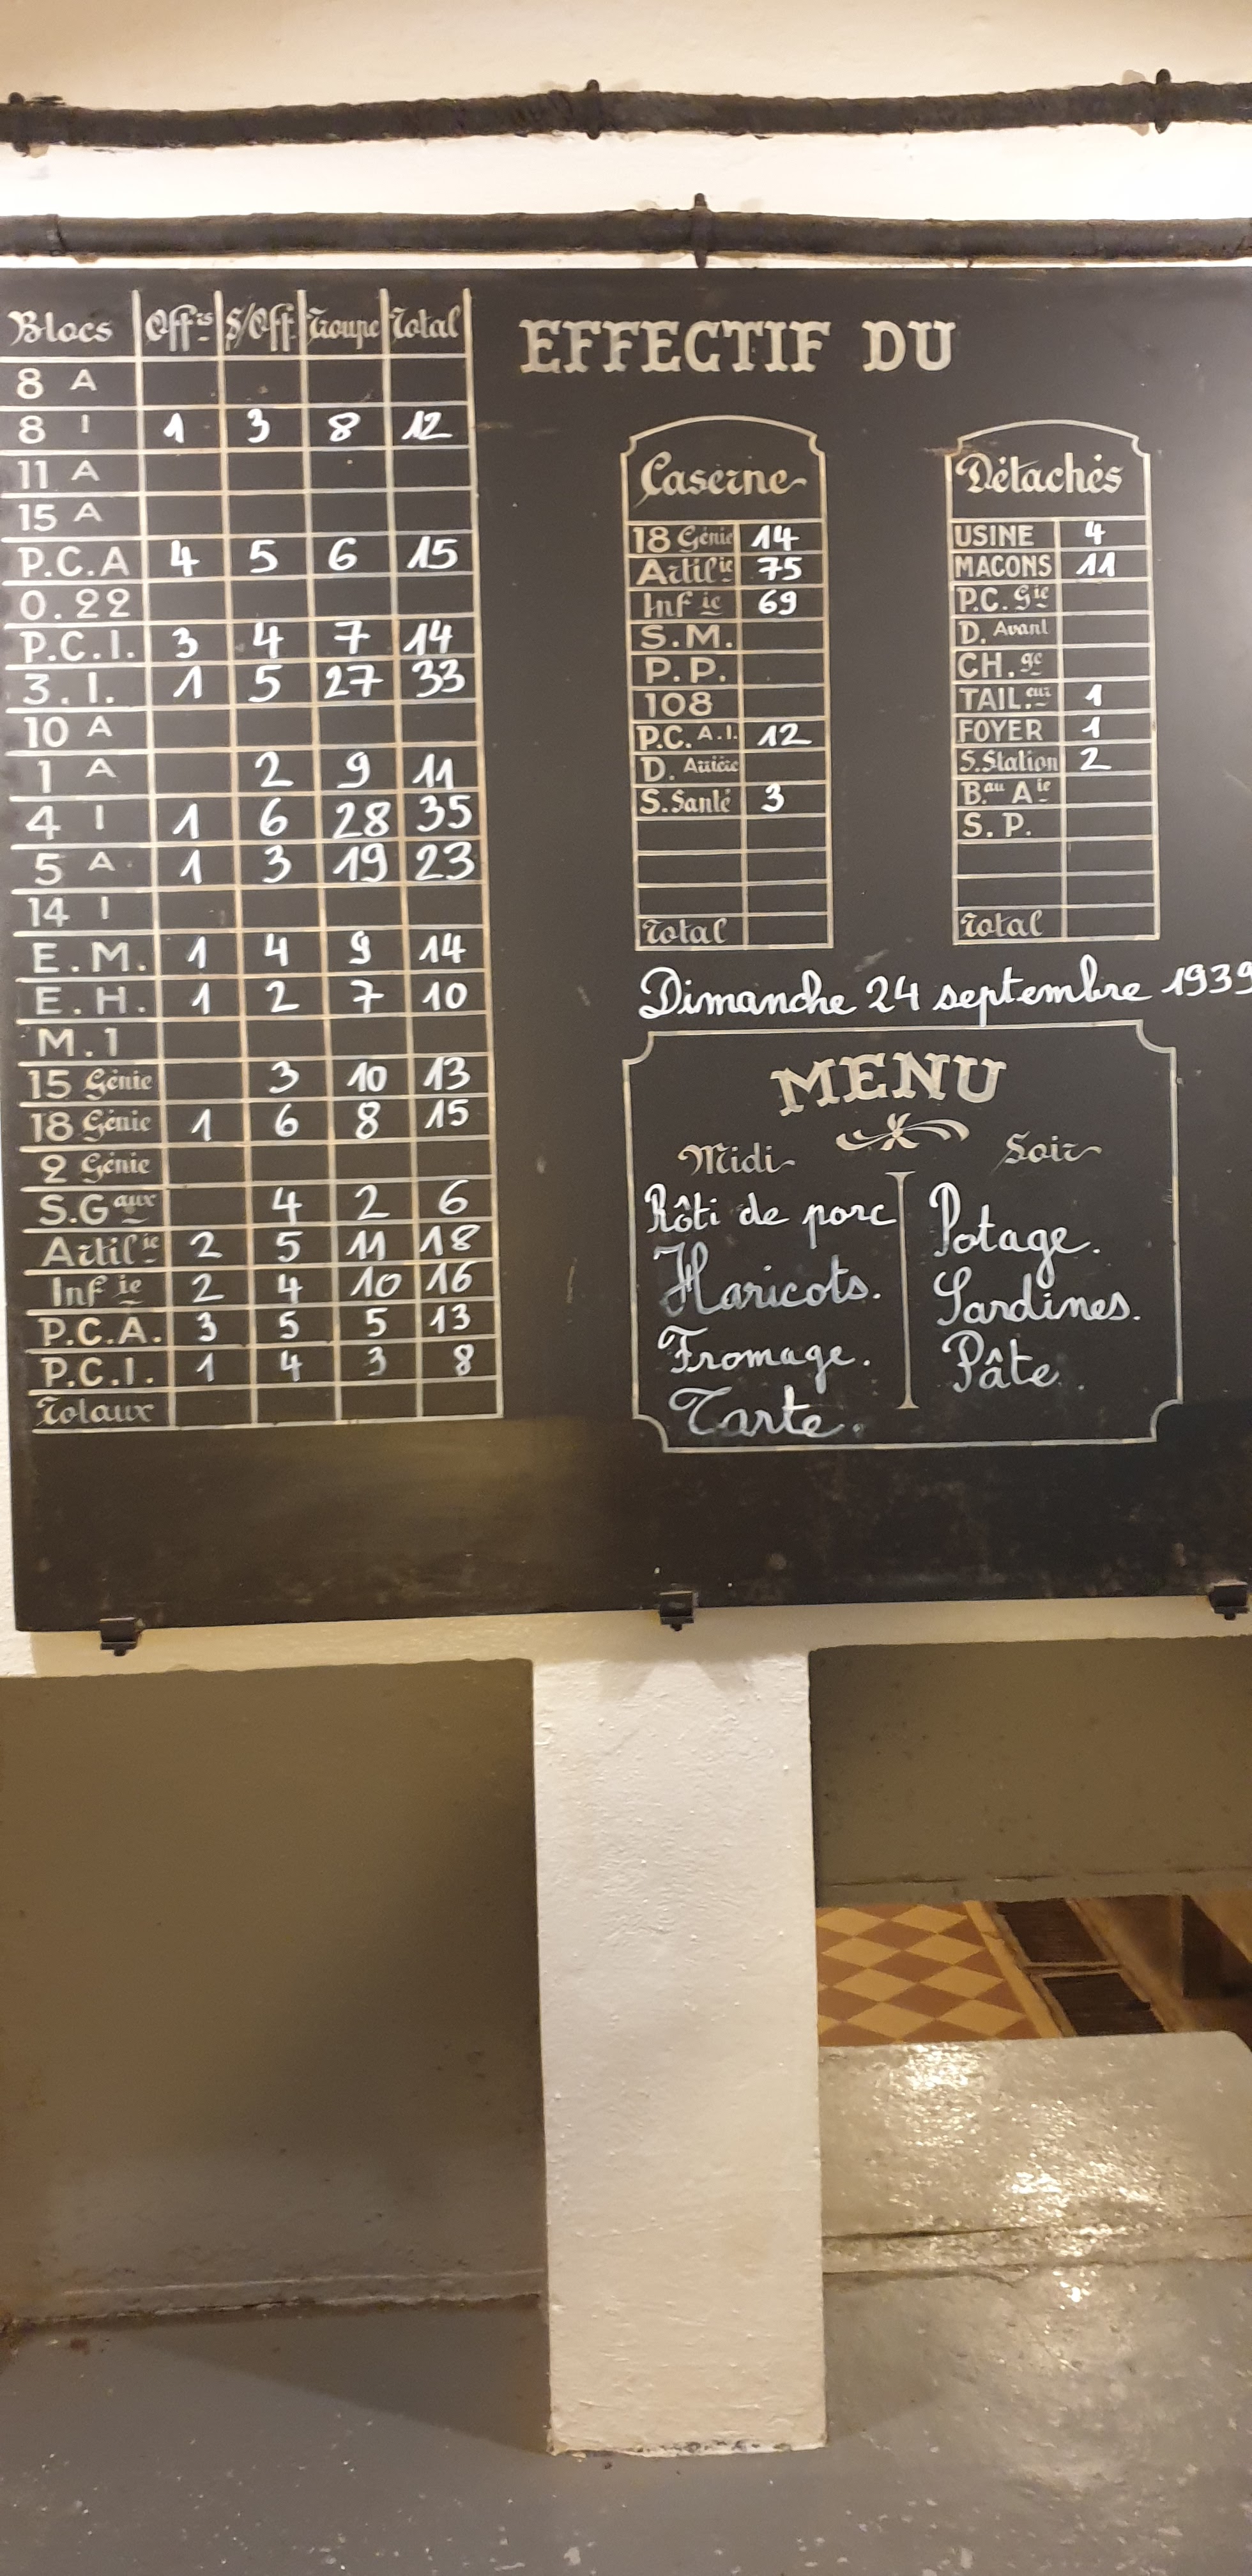 Blocs Off.rs S/Off. Troupe Total
8 A
8 I 1 3 8 12
11 A
15 A
P.C.A 4 5 6 15
O.22
P.C.I. 3 4 7 14
3.I. 1 5 27 33
10 A
1 A 2 9 11
4 I 1 6 28 35
5 A. 1 3 19 23
14 I
E.M. 1 4 9 14
E.H. 1 2 7 10
M.1
15 Génie 3 10 13
18 Génie 1 6 8 15
2 Génie
S.Gaux 4 2 6
Artilie 2 5 11 18
Infie 2 4 10 16
P.C.A. 3 5 5 13
P.C.I. 1 4 3 8
Totaux
EFFECTIF DU
Caserne
18 Génie 14
Artilie 75
Infie 69
S.M.
P.P.
108
P.C. A.I. 12
D. Arrière
S.Santé 3
Total
Détachés
USINE 4
MACONS 11
P.C. Gie
D. Avant
CH.ge
TAIL.eur 1
FOYER 1
S.Station 2
B.au Aie
S.P.
Total
Dimanche 24 septembre 1939
MENU
Midi
Rôti de porc
Haricots.
Fromage.
Tarte.
Soir
Potage.
Sardines.
Pâte.